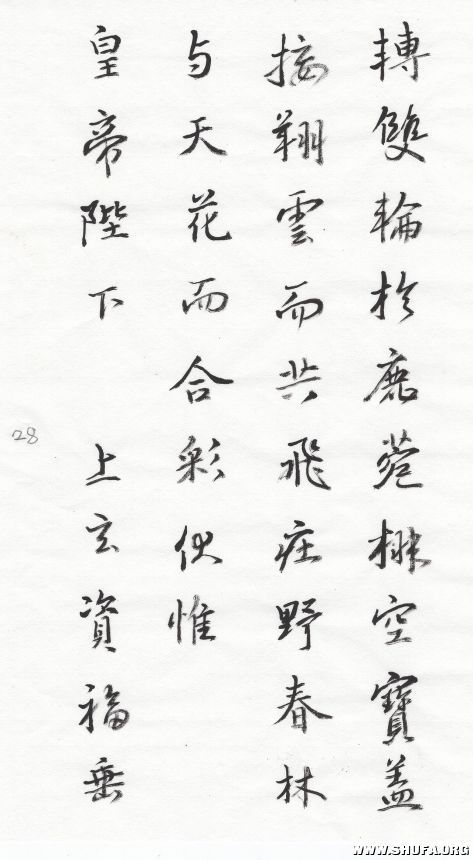 轉雙輪於鹿菀排空寶盖
接翔雲而共飛庄野春林
与天花而合彩伏惟
皇帝陛下 上玄資福垂
28
WWW.SHUFA.ORG